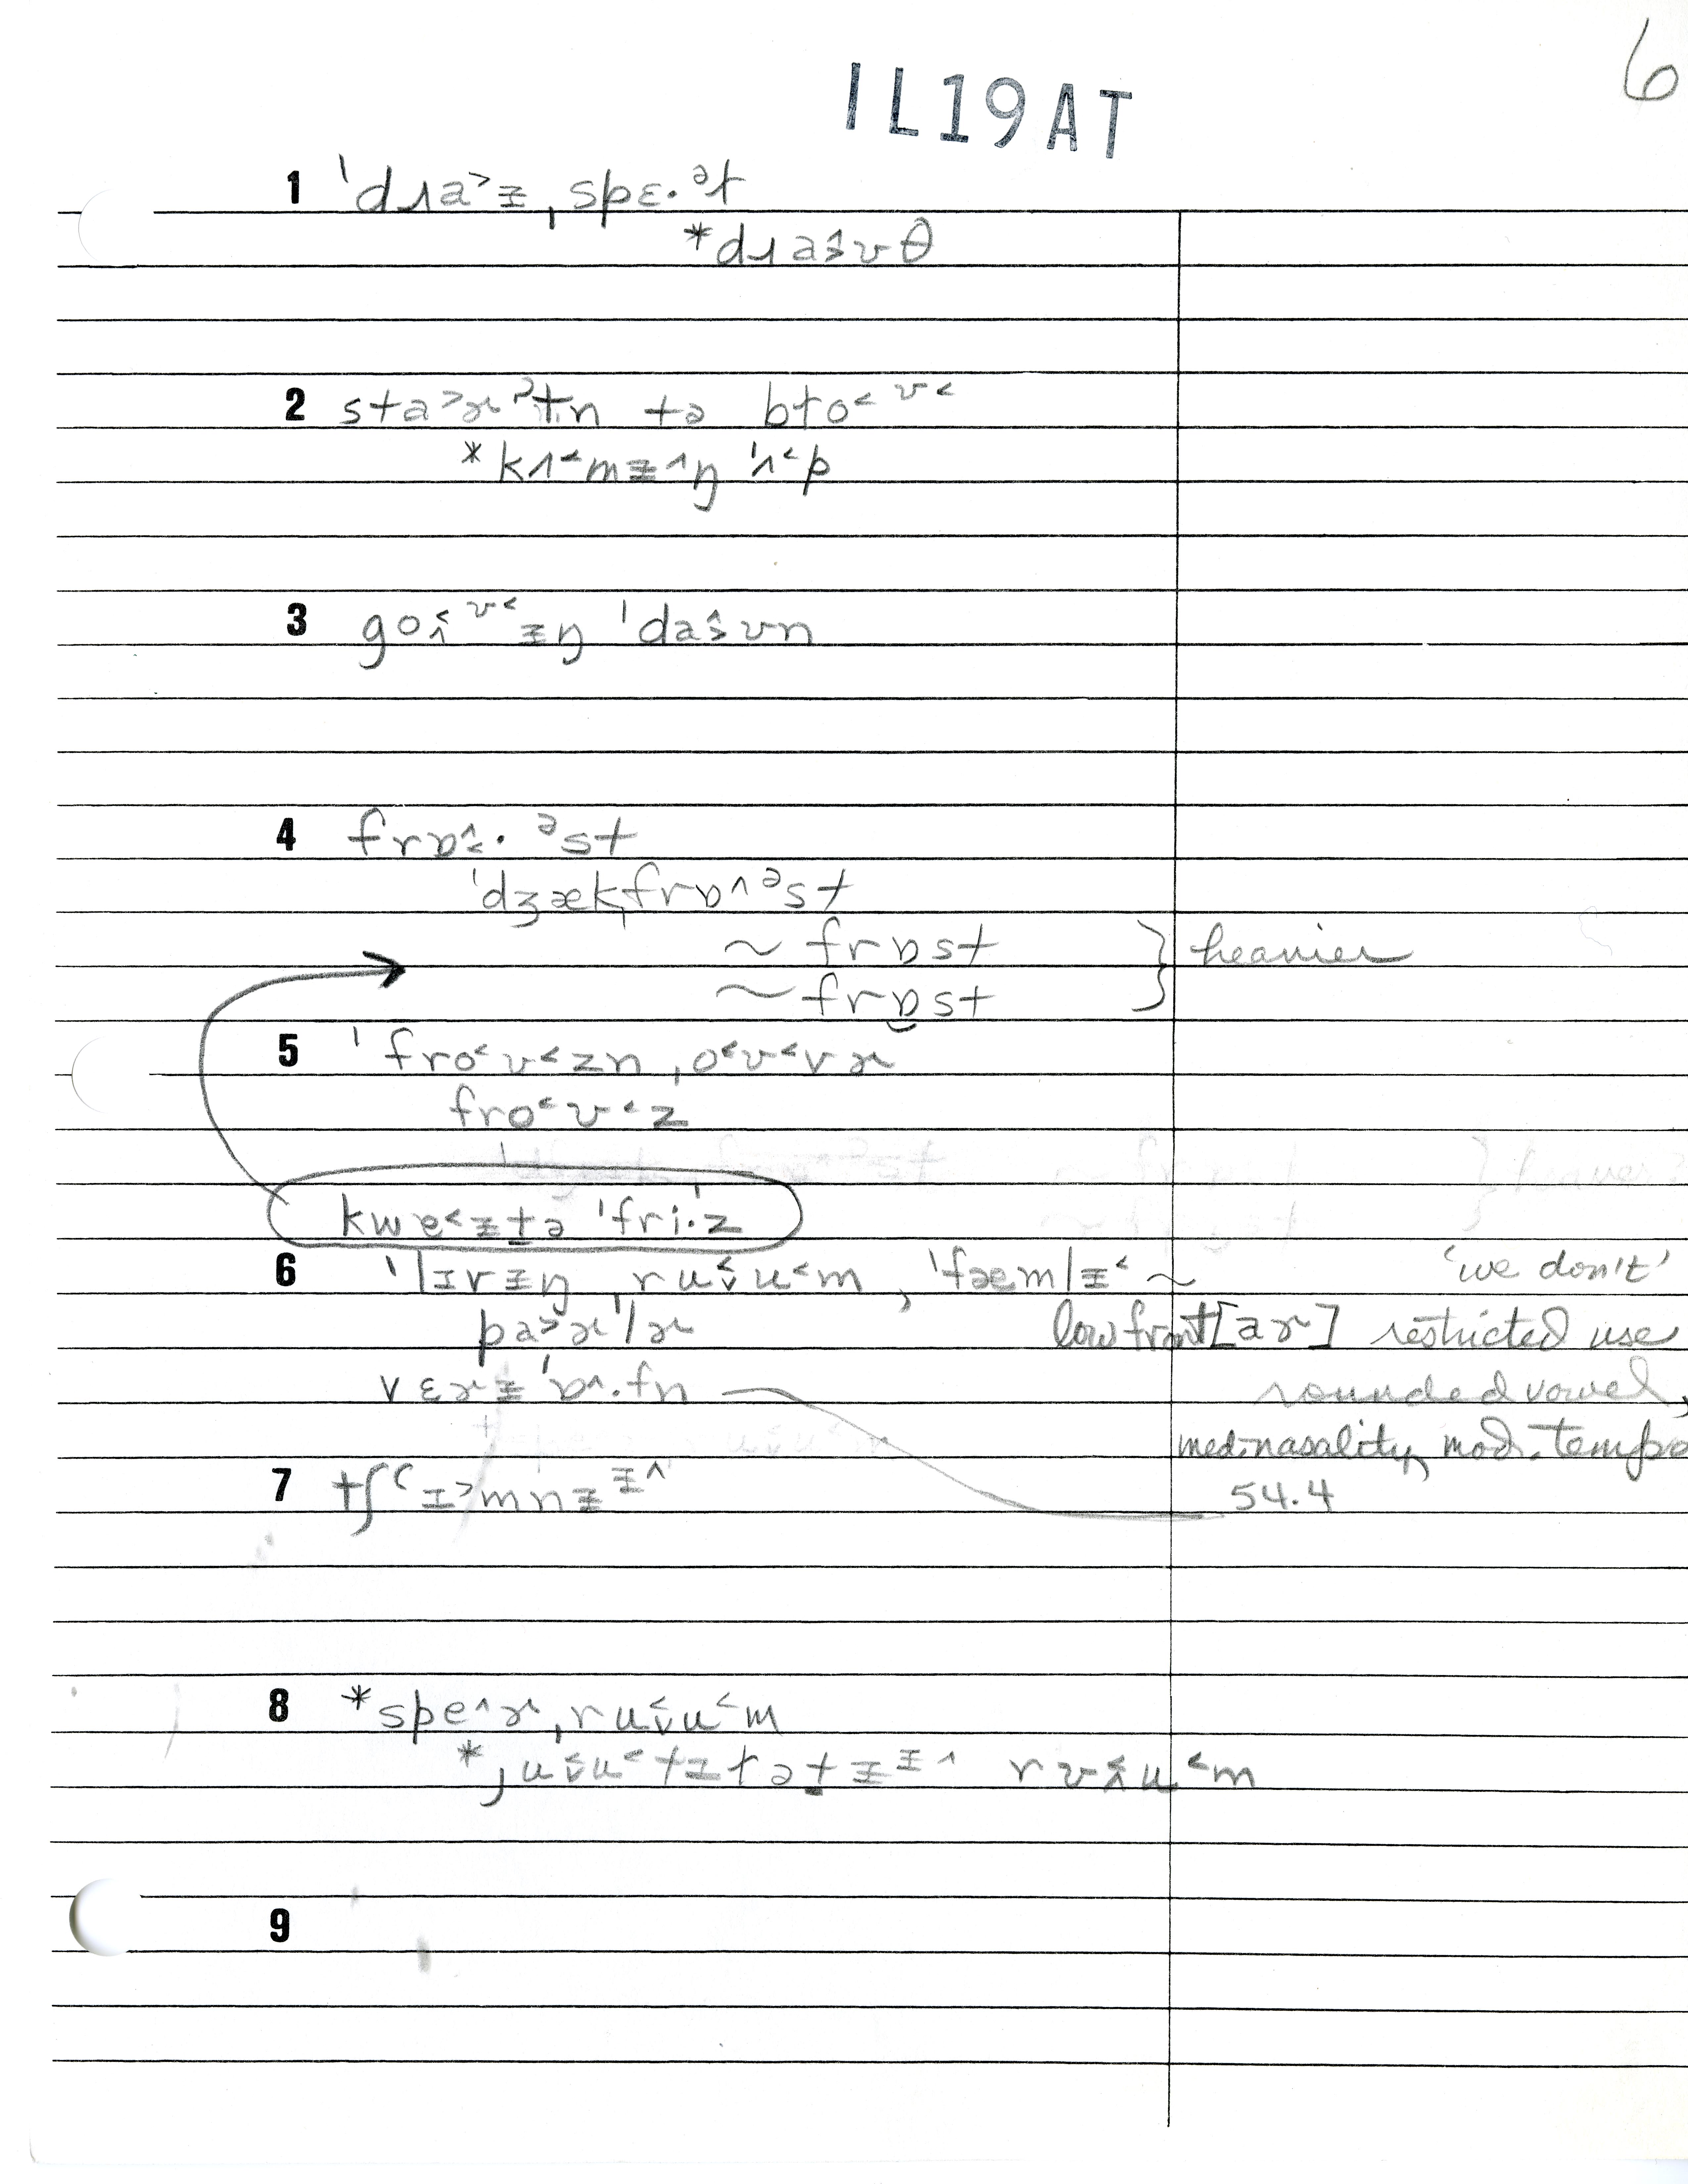 6
IL19AT
1 ˈdɹa˃ɪ̵ˌspɛ·ᵊt
*dɹaʊθ
2 sta˃ɚˀtn tə blo˂ʊ˂
*kʌ˂mɪ̵˄ŋ ˈʌ˂p
3 goʊ˂ɪ̵ŋ ˈdaʊn
4 frɒ·ᵊst
ˈdʒækˌfrɒ˄ᵊst
~ frɒst
~ frɒ̮st } heavier
5 ˈfro˂ʊ˂znˌo˂ʊ˂vɚ
fro˂ʊ˂z
kwe˂ɪ̵t̬ə ˈfri·z
6 ˈlɪvɪ̵ŋˌruu˂m, ˈfæmlɪ̵˂ ~ 'we don't'
pa˃ɚˈlɚ low front [aɚ] restricted use
vɛɚɪ̵ ˈɒ˄·fn rounded vowel,
med. nasality, mod. tempo
7 tʃʻɪ˃mnɪ̵ɪ̵˄ 54.4
8 *spe˄ɚˌruu˂m
*juu˂tɪlət̬ɪ̵ɪ̵˄ rʊu˂m
9